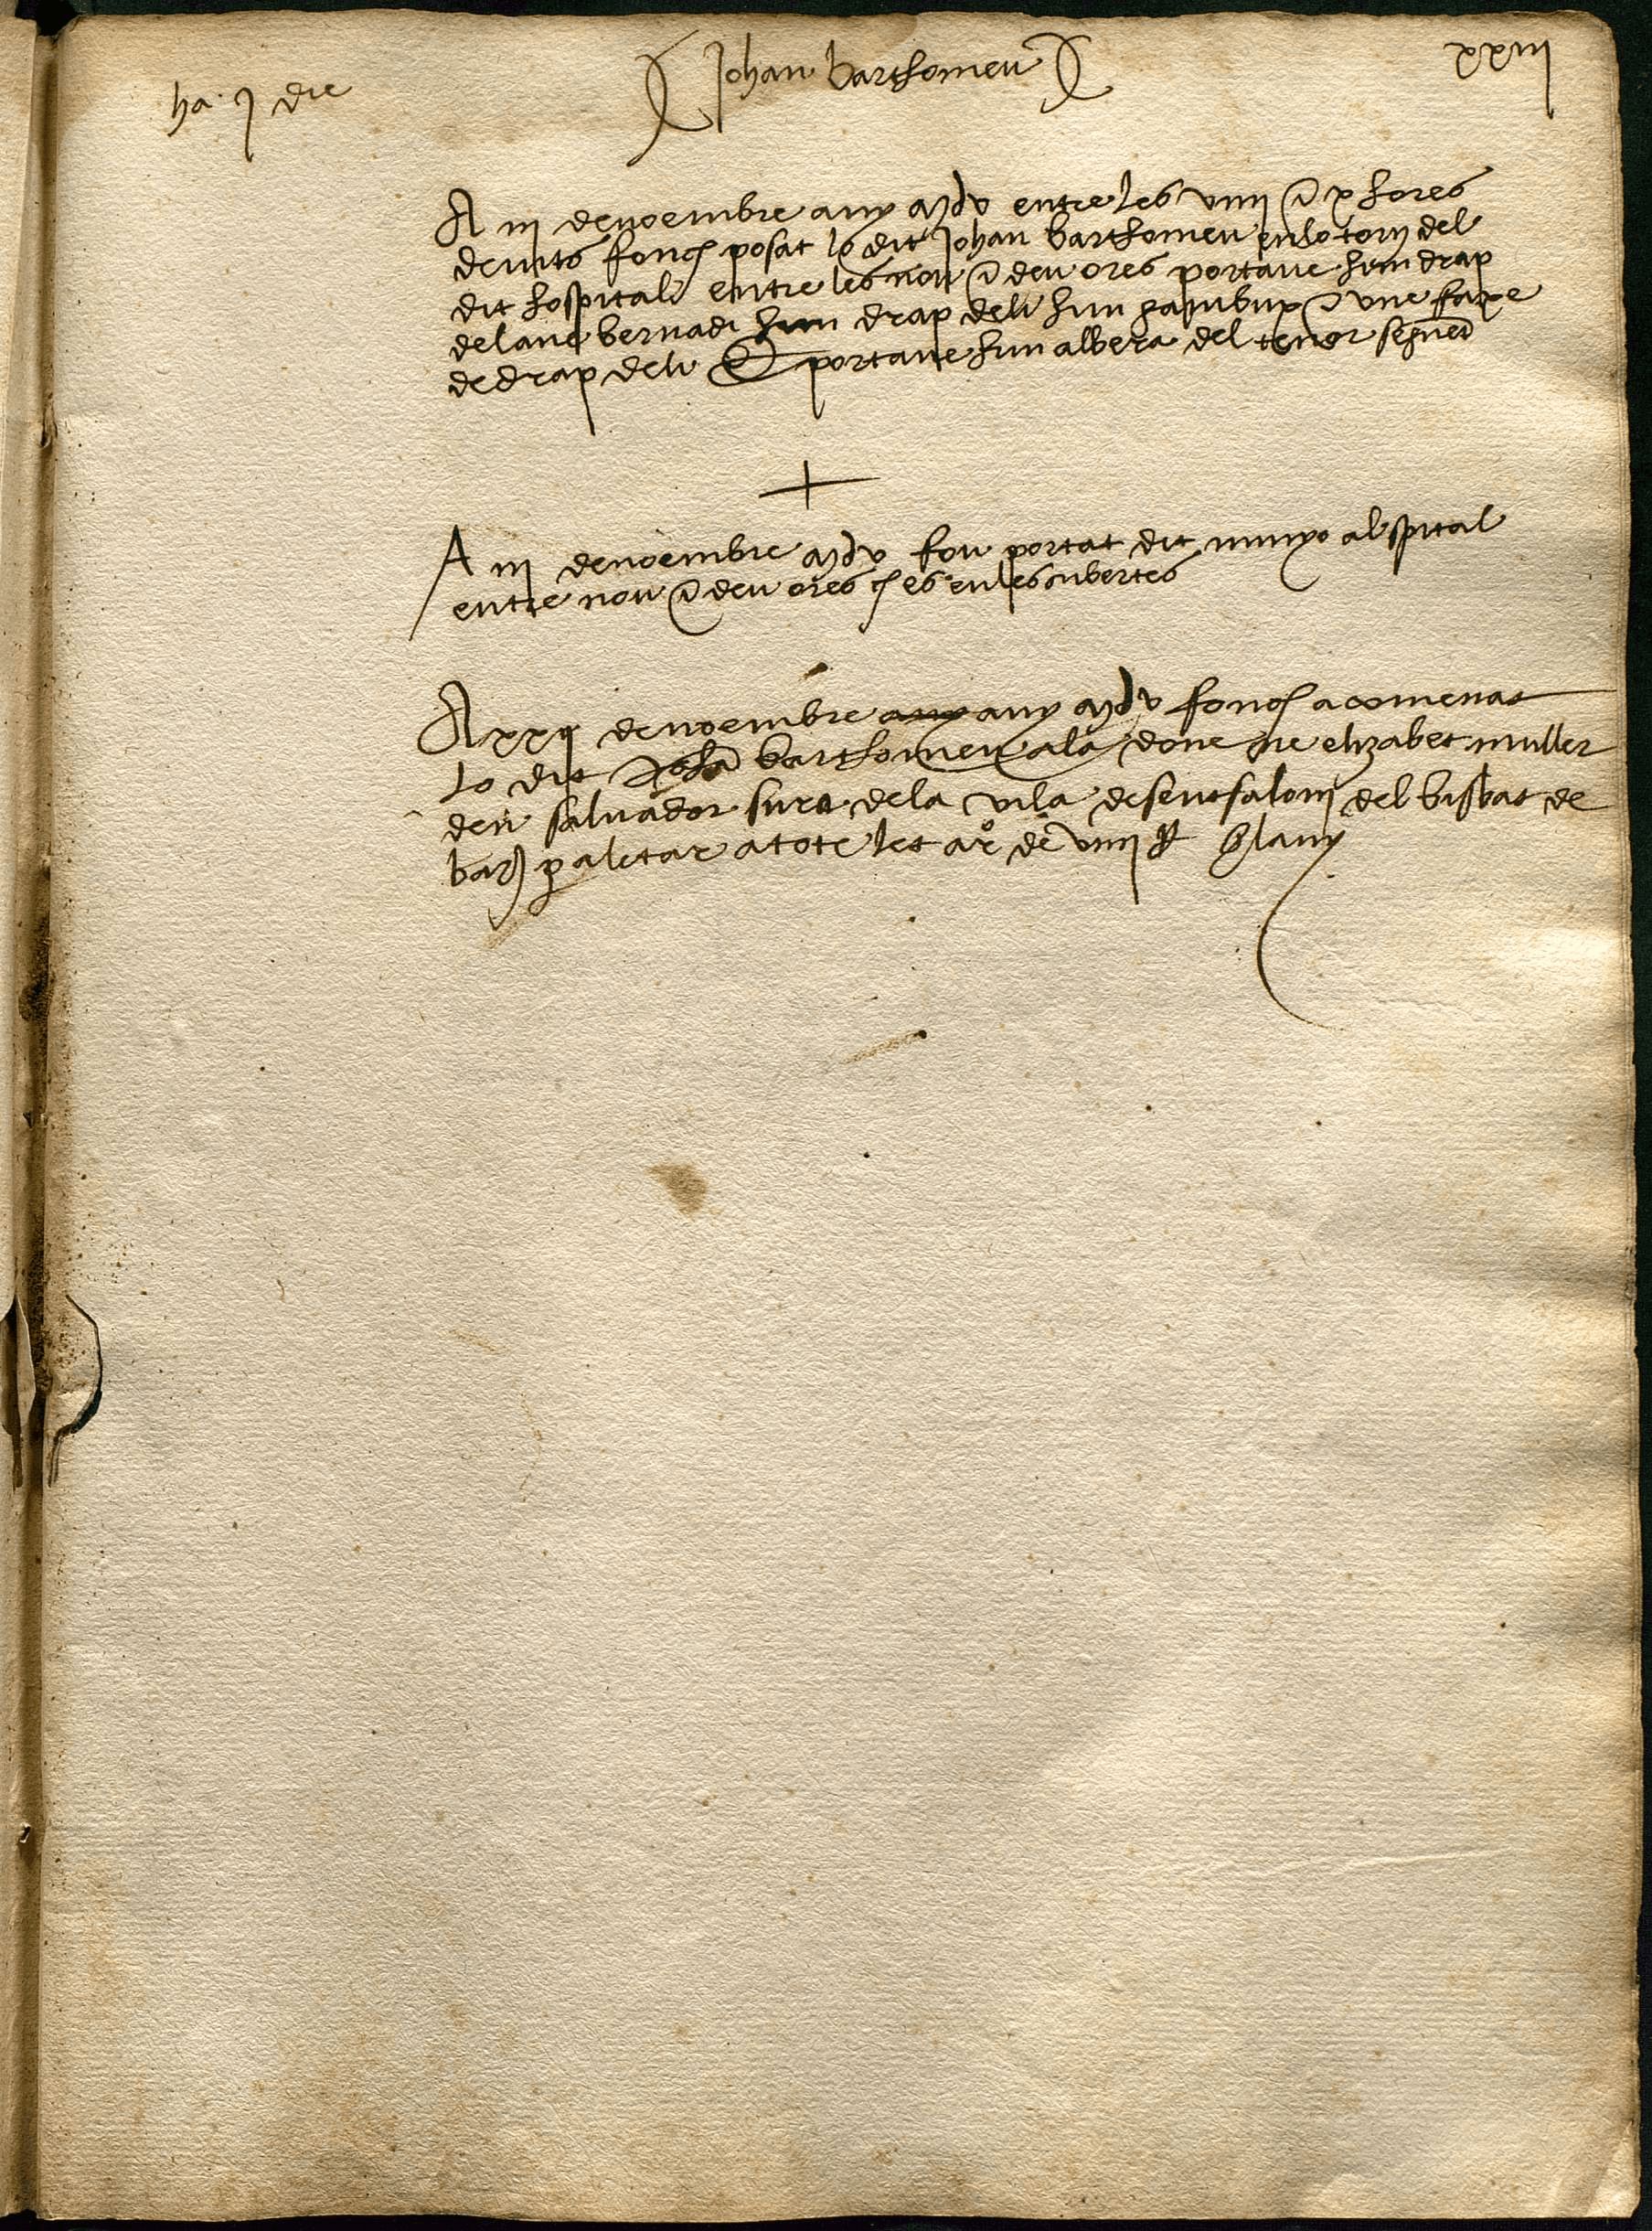 Johan barthomeu
xxiii
ha j die
A iii de noembre any mdv entre les viiii e x hores
de nits fonch posat lo dit Johan barthomeu en lo torn del
dit hospital entre les nou e deu ores portaue hun drap
de lane bernadi hun drap de li hun gambux e vne faxe
de drap de li E portaue hun albera del tenor seguent
A iii de noembre mdv fou portat dit minyo al spital
entre nou e deu ores q es en les cubertes
A xxj de noembre any any mdv fonch acomenat
lo dit Joha barthomeu a la done ne elizabet muller
den saluador sure de la vila de sent saloni del bisbat de
bar[n] p aletar a tote let a ro de viiii ll lany